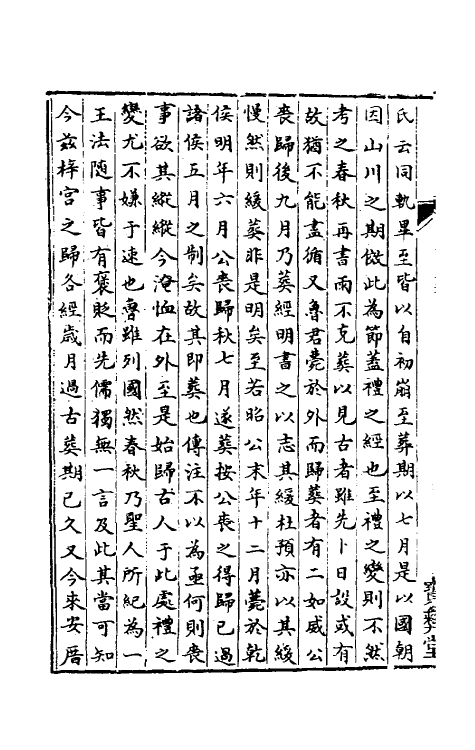 氏云同軌畢至皆以自初崩至葬期以七月是以國朝
因山川之期倣此為節蓋禮之經也至禮之變則不然
考之春秋再書雨不克葬以見古者雖先卜日設或有
故猶不能盡循又魯君薨於外而歸葬者有二如威公
喪歸後九月乃葬經明書之以志其緩杜預亦以其緩
慢然則緩葬非是明矣至若昭公末年十二月薨於乾
侯明年六月公喪歸秋七月遂葬按公喪之得歸已過
諸侯五月之制矣故其即葬也傳注不以為亟何則喪
事欲其縱縱今淹恤在外至是始歸古人于此處禮之
變尤不嫌于速也魯雖列國然春秋乃聖人所紀為一
王法隨事皆有褒貶而先儒獨無一言及此其當可知
今茲梓宮之歸各經歲月過古葬期已久又今來安厝